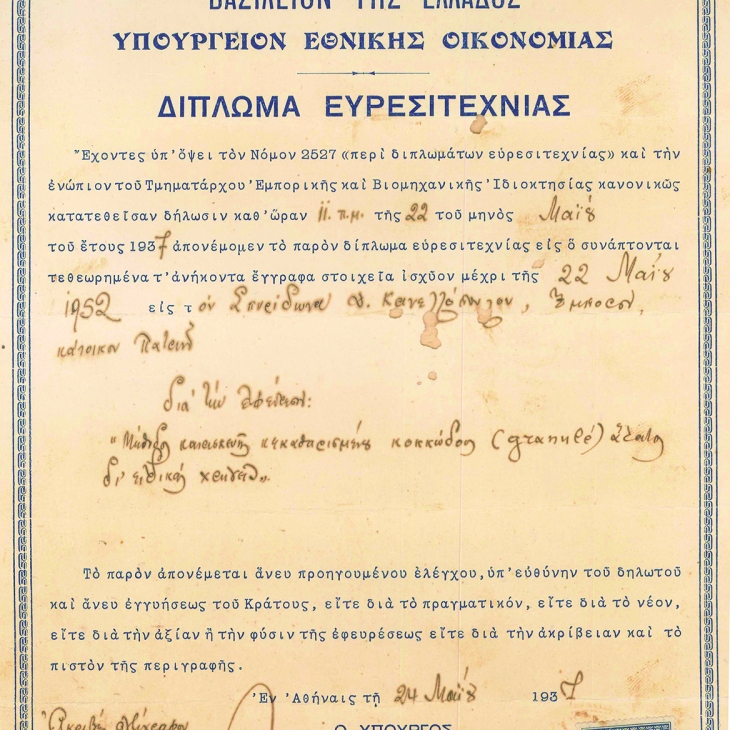 ΒΑΣΙΛΕΙΟΝ ΤΗΣ ΕΛΛΑΔΟΣ
ΥΠΟΥΡΓΕΙΟΝ ΕΘΝΙΚΗΣ ΟΙΚΟΝΟΜΙΑΣ
ΔΙΠΛΩΜΑ ΕΥΡΕΣΙΤΕΧΝΙΑΣ
Ἔχοντες ὑπ' ὄψει τὸν Νόμον 2527 «περὶ διπλωμάτων εὑρεσιτεχνίας» καὶ τὴν
ἐνώπιον τοῦ Τμηματάρχου Ἐμπορικῆς καὶ Βιομηχανικῆς Ἰδιοκτησίας κανονικῶς
κατατεθεῖσαν δήλωσιν καθ' ὥραν 11 π.μ. τῆς 22 τοῦ μηνὸς Μαΐου
τοῦ ἔτους 1937 ἀπονέμομεν τὸ παρὸν δίπλωμα εὑρεσιτεχνίας εἰς ὃ συνάπτονται
τεθεωρημένα τ' ἀνήκοντα ἔγγραφα στοιχεῖα ἰσχῦον μέχρι τῆς 22 Μαΐου
1952 εἰς τὸν Σπυρίδωνα Κανελλόπουλον, Ἔμπορον,
κάτοικον Πατρῶν
διὰ τὴν ἐφεύρεσιν:
«Μέθοδος κατασκευῆς κεκαθαρισμένου κοκκώδους (granulé) ἅλατος
δι' εἰδικὴν χρῆσιν».
Τὸ παρὸν ἀπονέμεται ἄνευ προηγουμένου ἐλέγχου, ὑπ' εὐθύνην τοῦ δηλωτοῦ
καὶ ἄνευ ἐγγυήσεως τοῦ Κράτους, εἴτε διὰ τὸ πραγματικόν, εἴτε διὰ τὸ νέον,
εἴτε διὰ τὴν ἀξίαν ἢ τὴν φύσιν τῆς ἐφευρέσεως εἴτε διὰ τὴν ἀκρίβειαν καὶ τὸ
πιστὸν τῆς περιγραφῆς.
Ἐν Ἀθήναις τῇ 24 Μαΐου 1937
Ἀκριβὲς Ἀντίγραφον
Ο ΥΠΟΥΡΓΟΣ